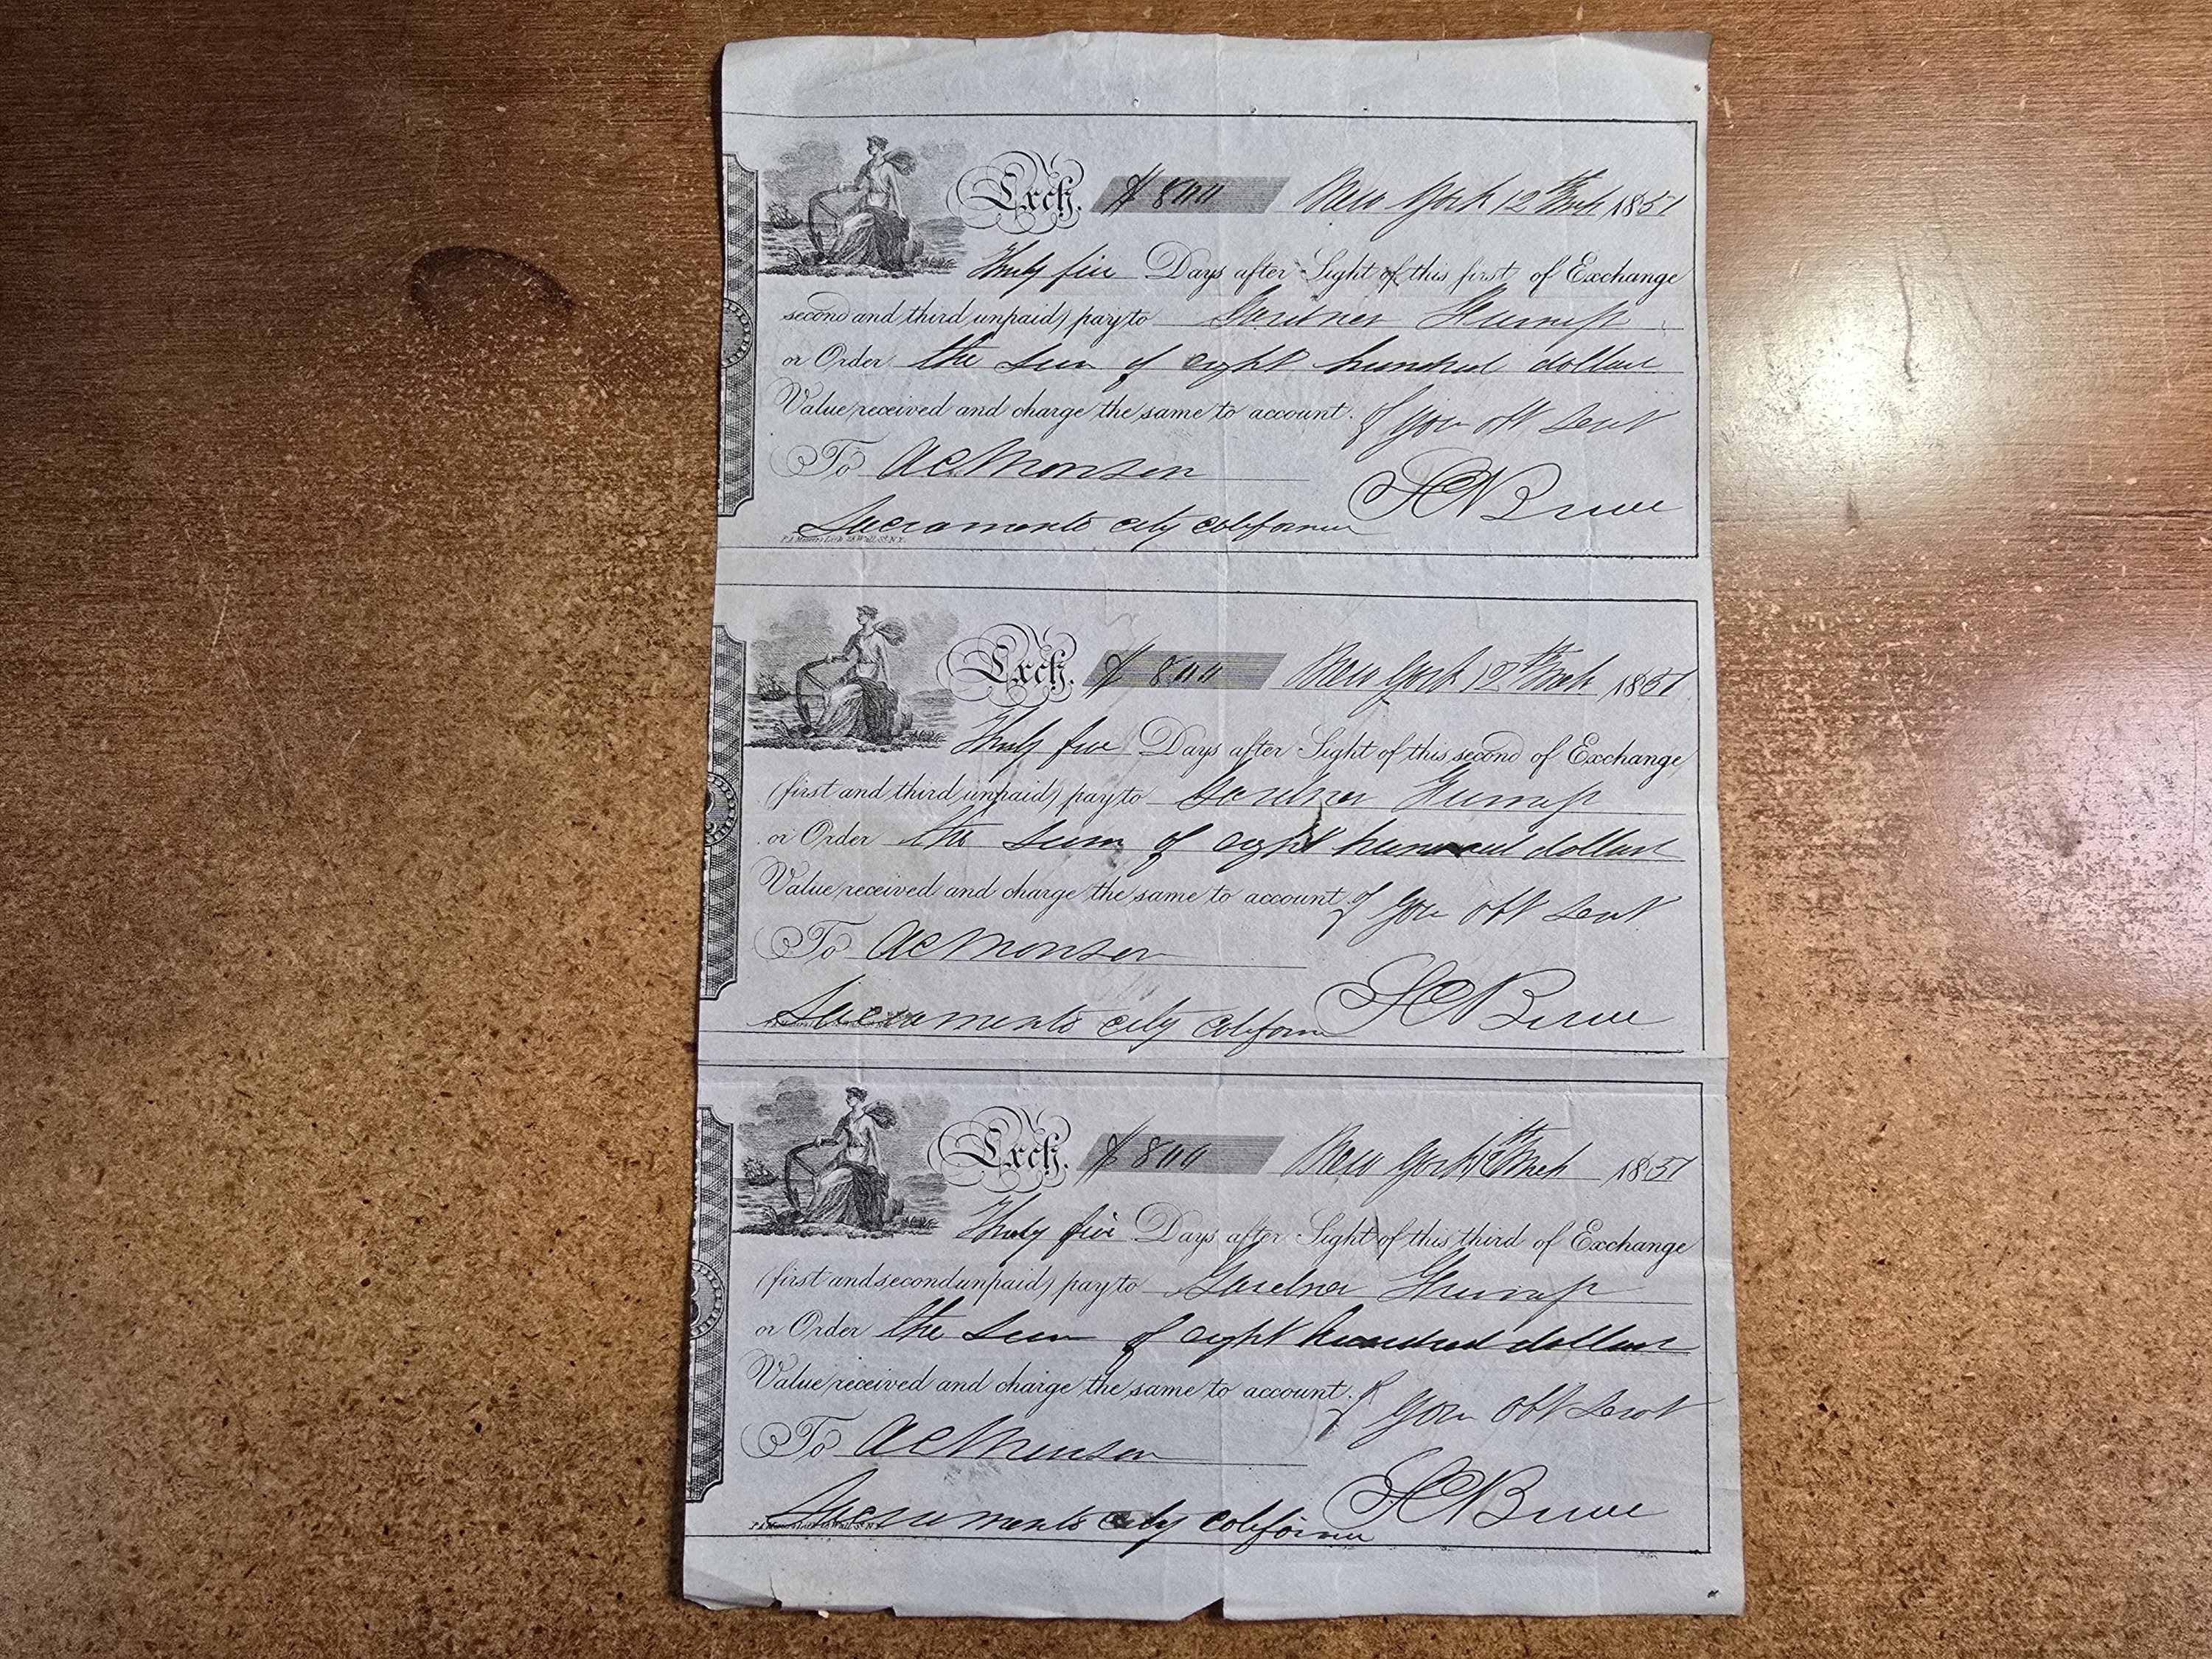 Exch. $800 New York 12th Mch 1851
Thirty five Days after Sight of this first of Exchange
second and third unpaid) pay to Gardner
or Order the sum of eight hundred dollars
Value received and charge the same to account. of Your obt Servt
To A C Monson
S C Bruce
Sacramento city California
P.A. Mesier's Lith. 28 Wall St. N.Y.
Exch. $800 New York 12th Mch 1851
Thirty five Days after Sight of this second of Exchange
(first and third unpaid) pay to Gardner
or Order the sum of eight hundred dollars
Value received and charge the same to account. of Your obt Servt
To A C Monson
S C Bruce
Sacramento city California
Exch. $800 New York 12th Mch 1851
Thirty five Days after Sight of this third of Exchange
(first and second unpaid) pay to Gardner
or Order the sum of eight hundred dollars
Value received and charge the same to account. of Your obt Servt
To A C Monson
S C Bruce
Sacramento city California